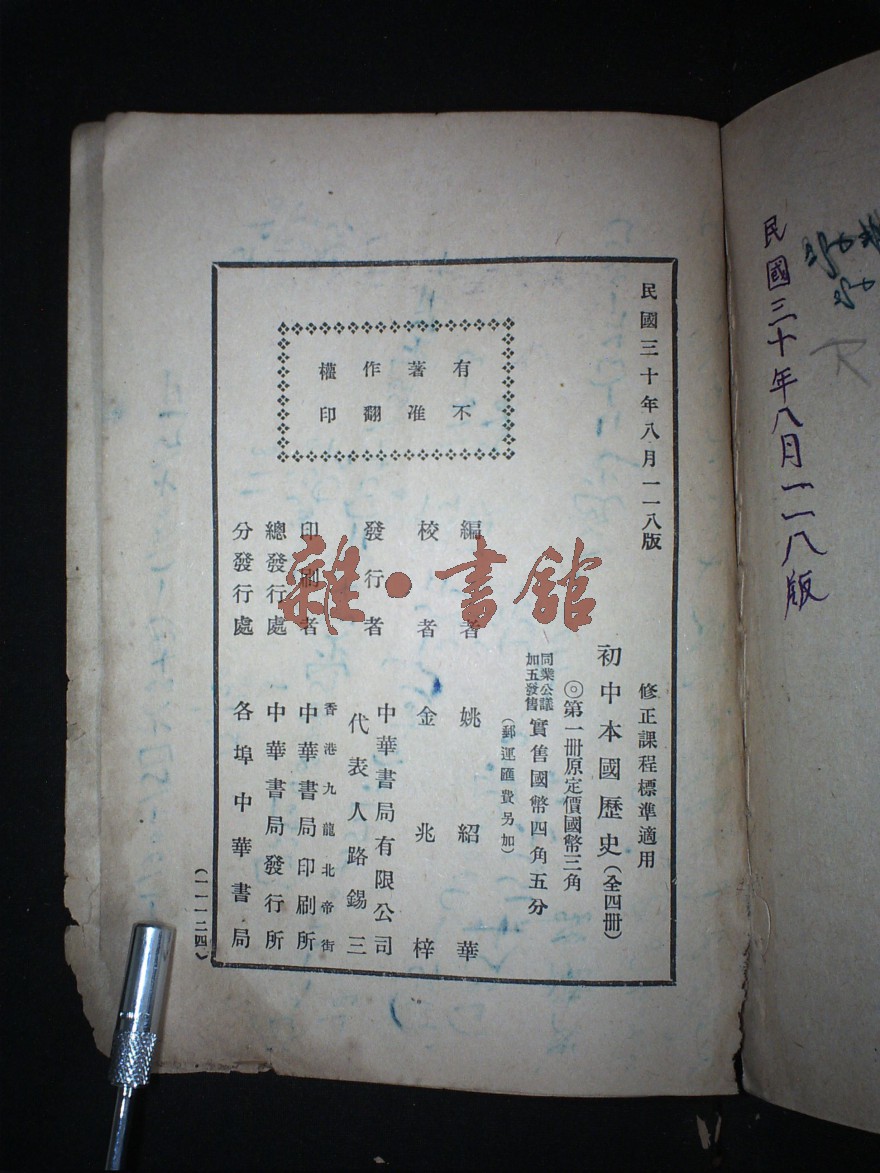 民國三十年八月一一八版
民國三十年八月一一八版
修正課程標準適用
初中本國歷史(全四冊)
◎第一冊原定價國幣三角
同業公議
加五發售
實售國幣四角五分
(郵運匯費另加)
有不
著准
作翻
權印
編者 姚紹華
校者 金兆梓
發行者 中華書局有限公司
代表人路錫三
香港九龍北帝街
印刷者 中華書局印刷所
總發行處 中華書局發行所
分發行處 各埠中華書局
(一一一二四)
雜·書館